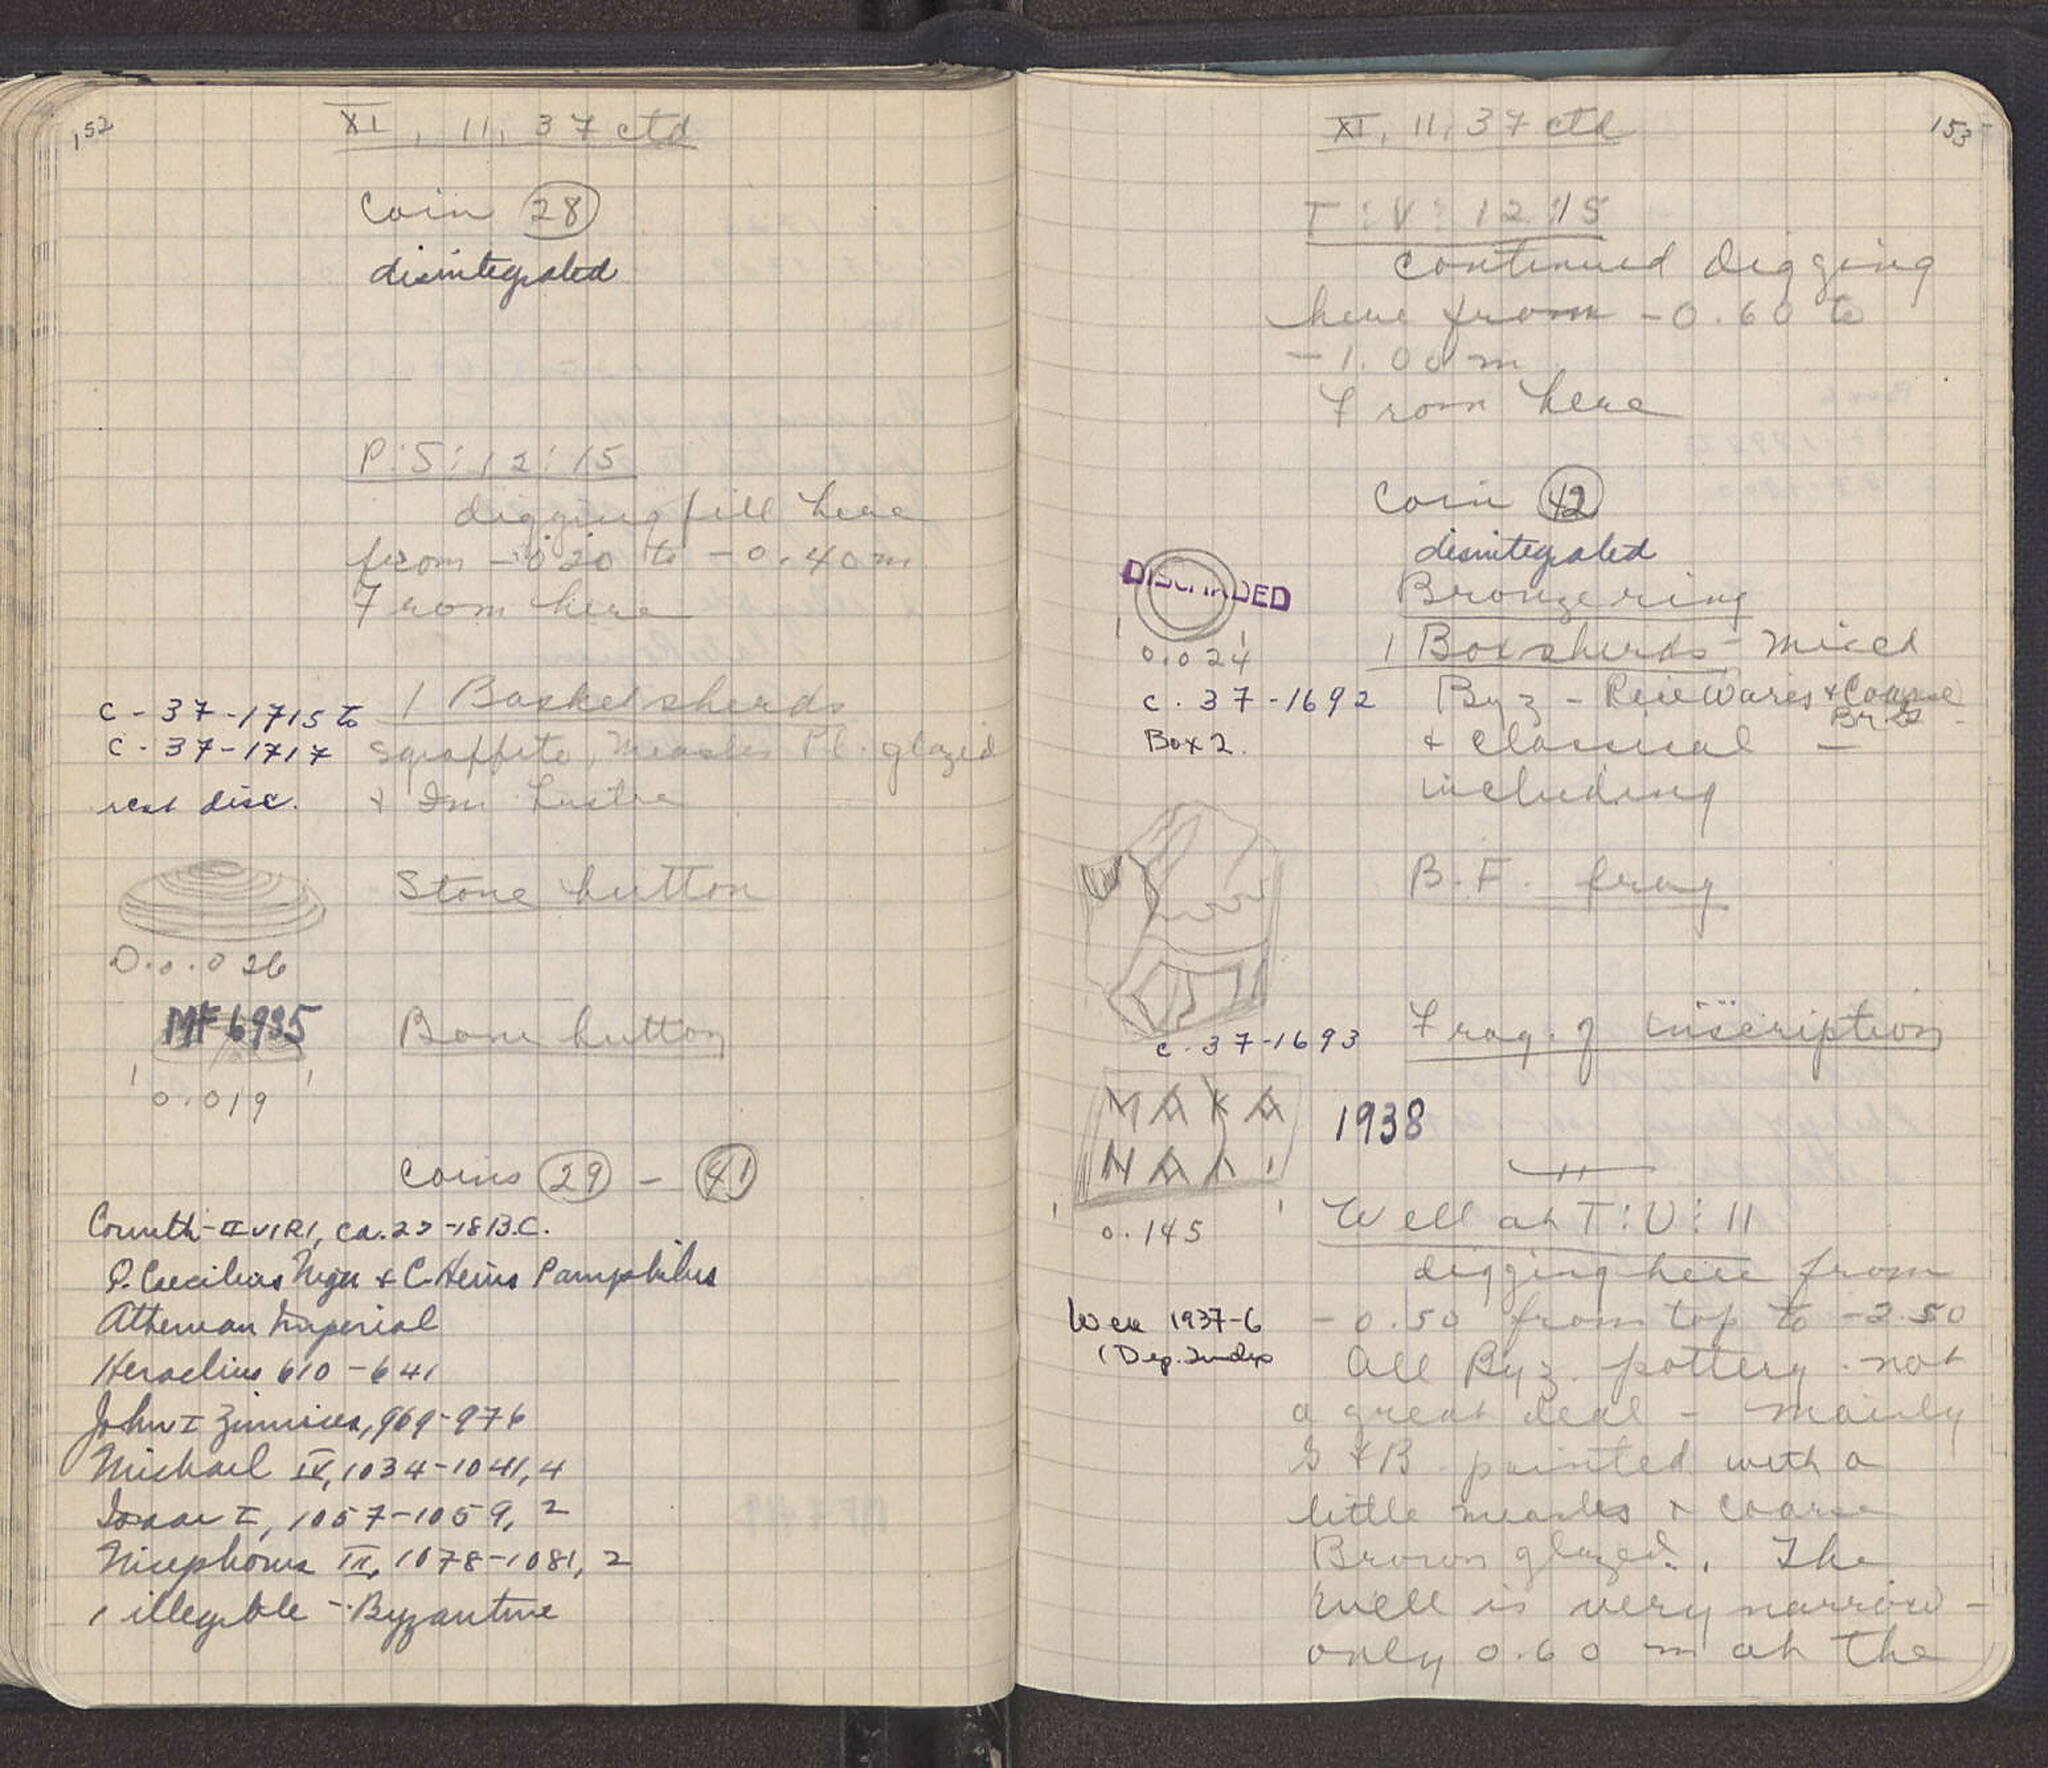 152
XI, 11, 37 ctd
Coin 28
disintegrated
P:S:12:15
digging fill here
from -0.20 to -0.40 m
From here
C-37-1715 to
C-37-1717
rest disc.
1 Basket sherds
Sgraffito, Measles Pl. glazed
+ Im Lustre
Stone button
D. 0.026
MF 6995
Bone button
0.019
Coins 29 - 41
Corinth - II VIRI, ca. 22-18 B.C.
P. Caecilius Niger + C. Heius Pamphilus
Athenian Imperial
Heraclius 610-641
John I Zimisces, 969-976
Michael IV, 1034-1041, 4
Isaac I, 1057-1059, 2
Nicephorus III, 1078-1081, 2
1 illegible - Byzantine
153
XI, 11, 37 ctd
T:V:12:15
Continued digging
here from -0.60 to
-1.00 m
From here
Coin 42
disintegrated
DISCARDED
Bronze ring
0.024
1 Box sherds - mixed
C-37-1692
Box 2.
Byz - Wares + Coarse
+ Classical -
including
B.F. frag
C-37-1693
Frag. of inscription
ΜΑΚΑ
ΝΑΛΙ
1938
0.145
Well at T:U:11
digging here from
Well 1937-6
(Dep. Index
-0.50 from top to -2.50
All Byz. pottery - not
a great deal - mainly
G + B painted with a
little measles + coarse
Brown glazed. The
well is very narrow -
only 0.60 m at the